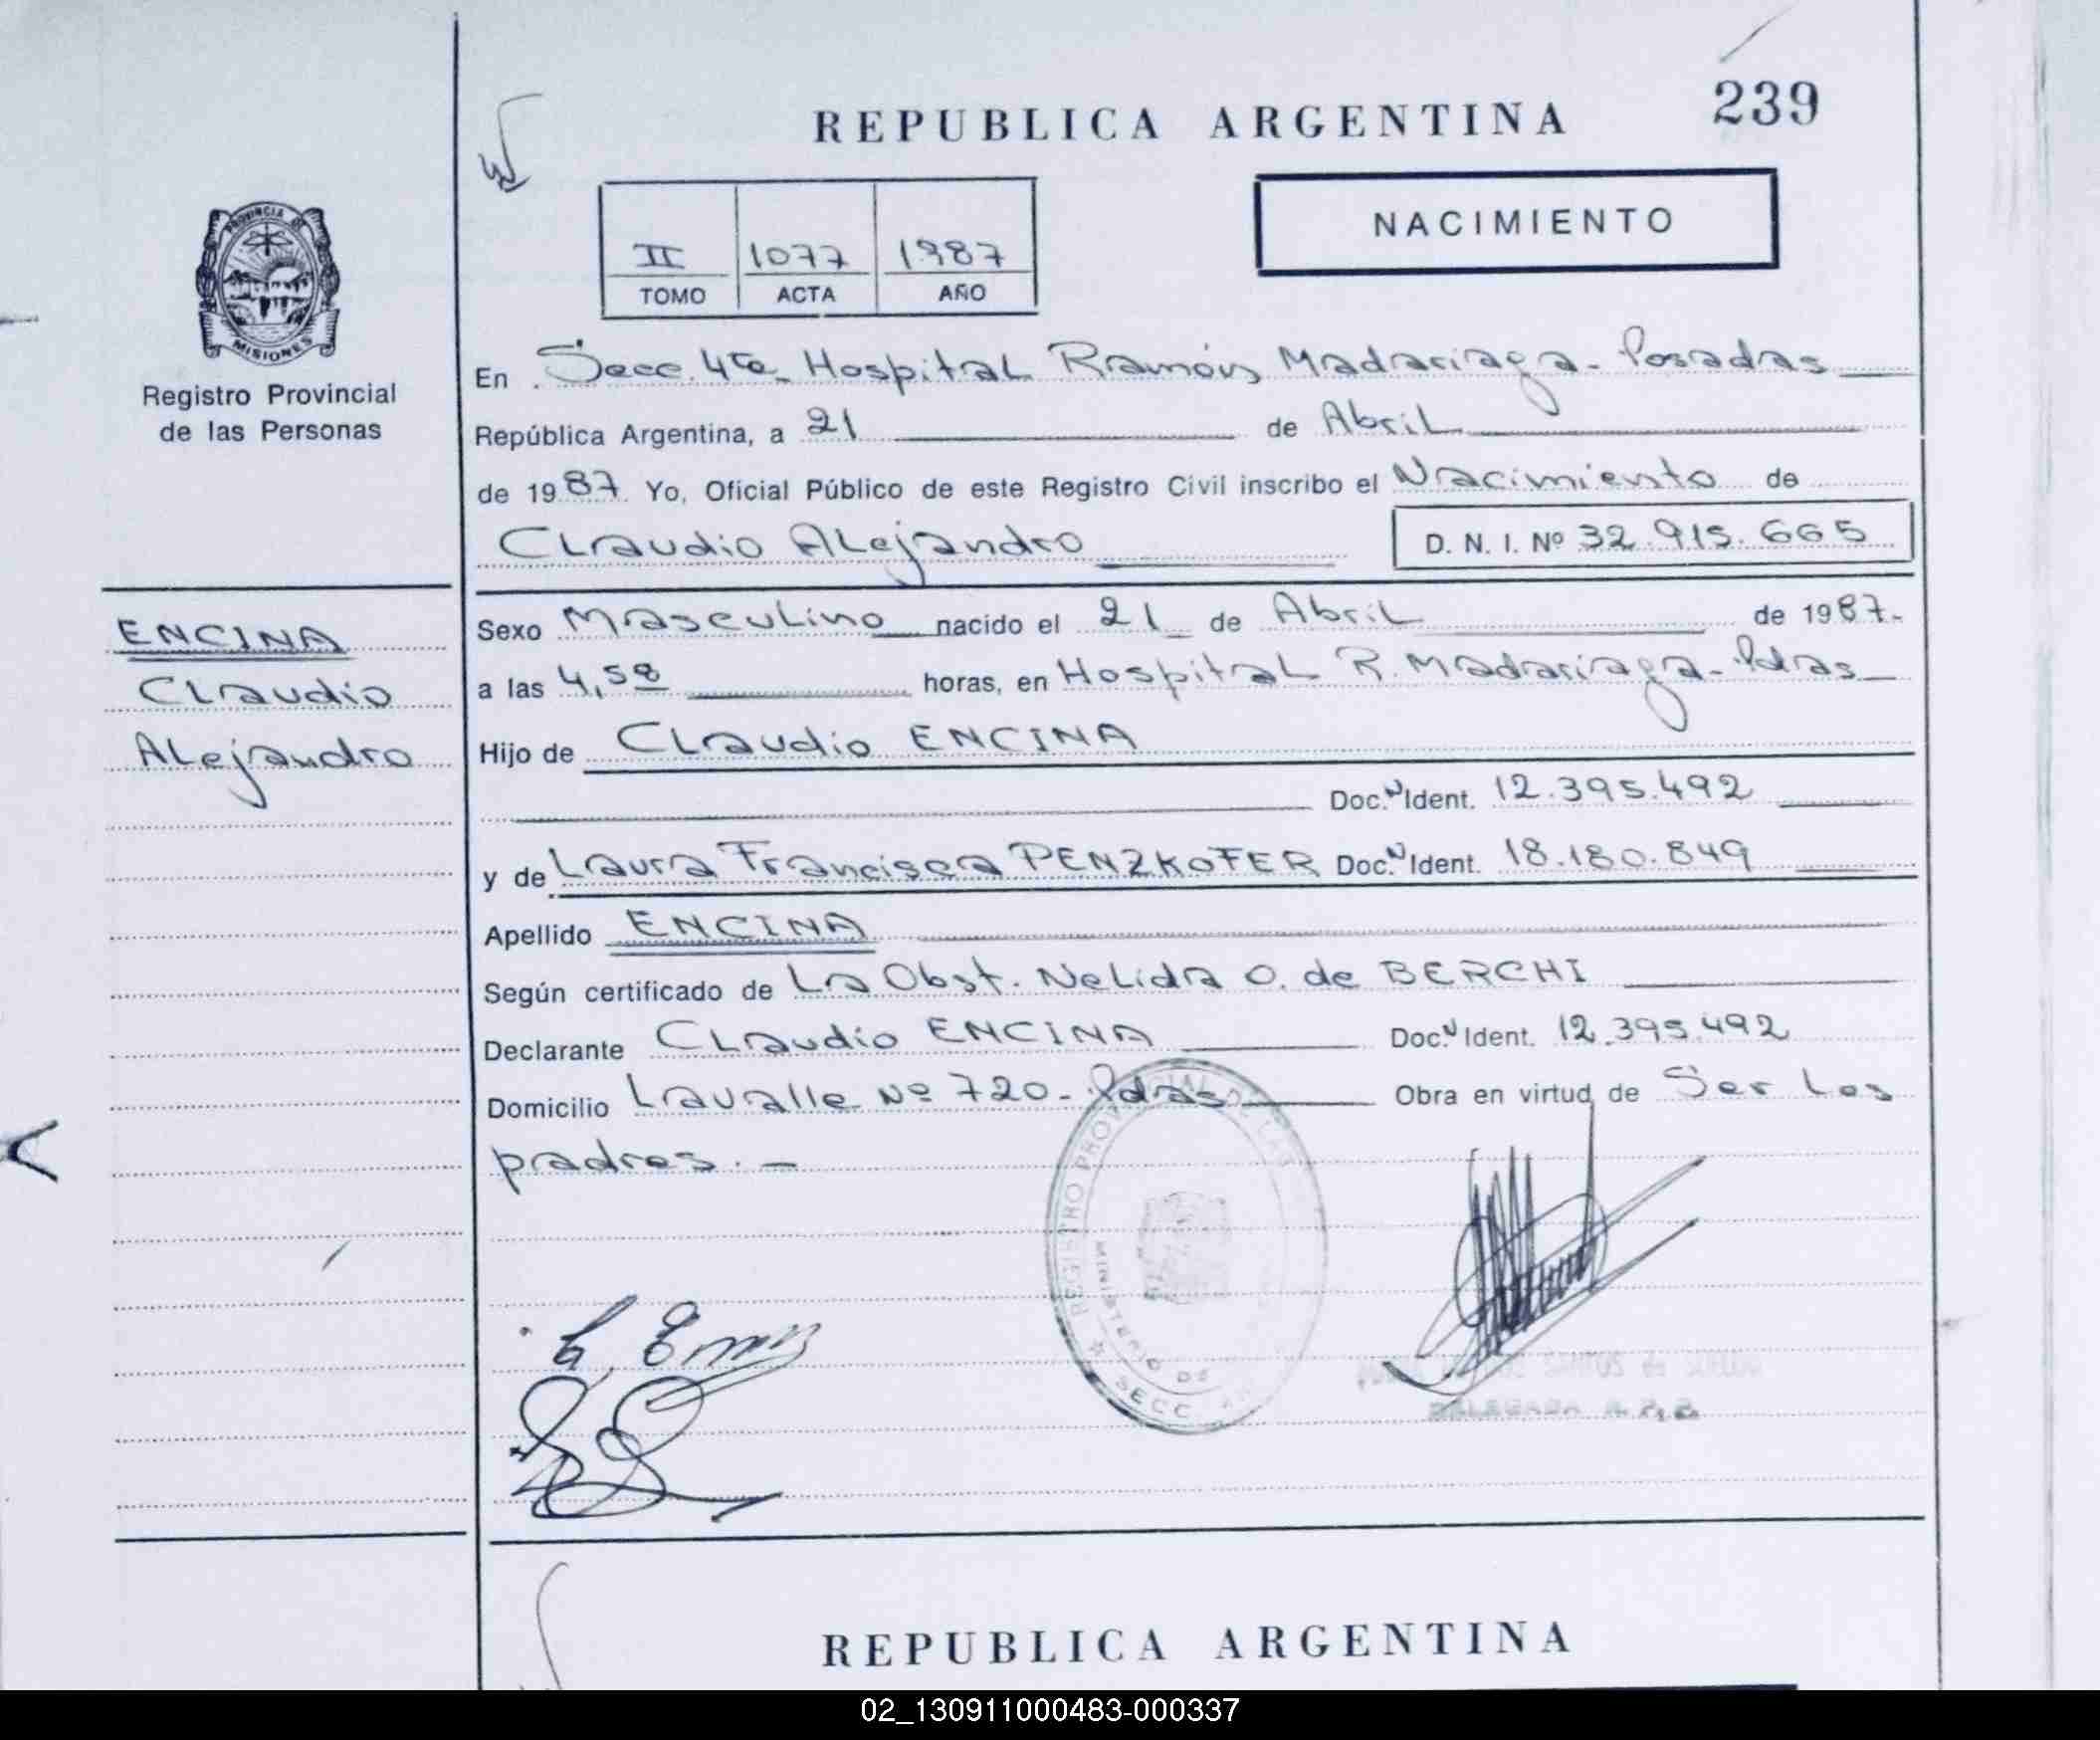 REPUBLICA ARGENTINA
239
NACIMIENTO
II 1077 1987
TOMO ACTA AÑO
PROVINCIA DE
MISIONES
Registro Provincial
de las Personas
En Secc. 4ta Hospital Ramón Madariaga - Posadas
República Argentina, a 21 de Abril
de 1987 Yo, Oficial Público de este Registro Civil inscribo el Nacimiento de
Claudio Alejandro
D. N. I. Nº 32.915.665
ENCINA
Claudio
Alejandro
Sexo Masculino nacido el 21 de Abril de 1987.
a las 4,58 horas, en Hospital R. Madariaga - Pdas
Hijo de Claudio ENCINA
Doc. Ident. 12.395.492
y de Laura Francisca PENZKOFER Doc. Ident. 18.180.849
Apellido ENCINA
Según certificado de La Obst. Nelida O. de BERCHI
Declarante Claudio ENCINA Doc. Ident. 12.395.492
Domicilio Lavalle Nº 720 - Pdas Obra en virtud de Ser Los
padres. -
REGISTRO PROVINCIAL DE LAS
MINISTERIO DE
SECC
SANTOS de
DELEGADA
REPUBLICA ARGENTINA
02_130911000483-000337